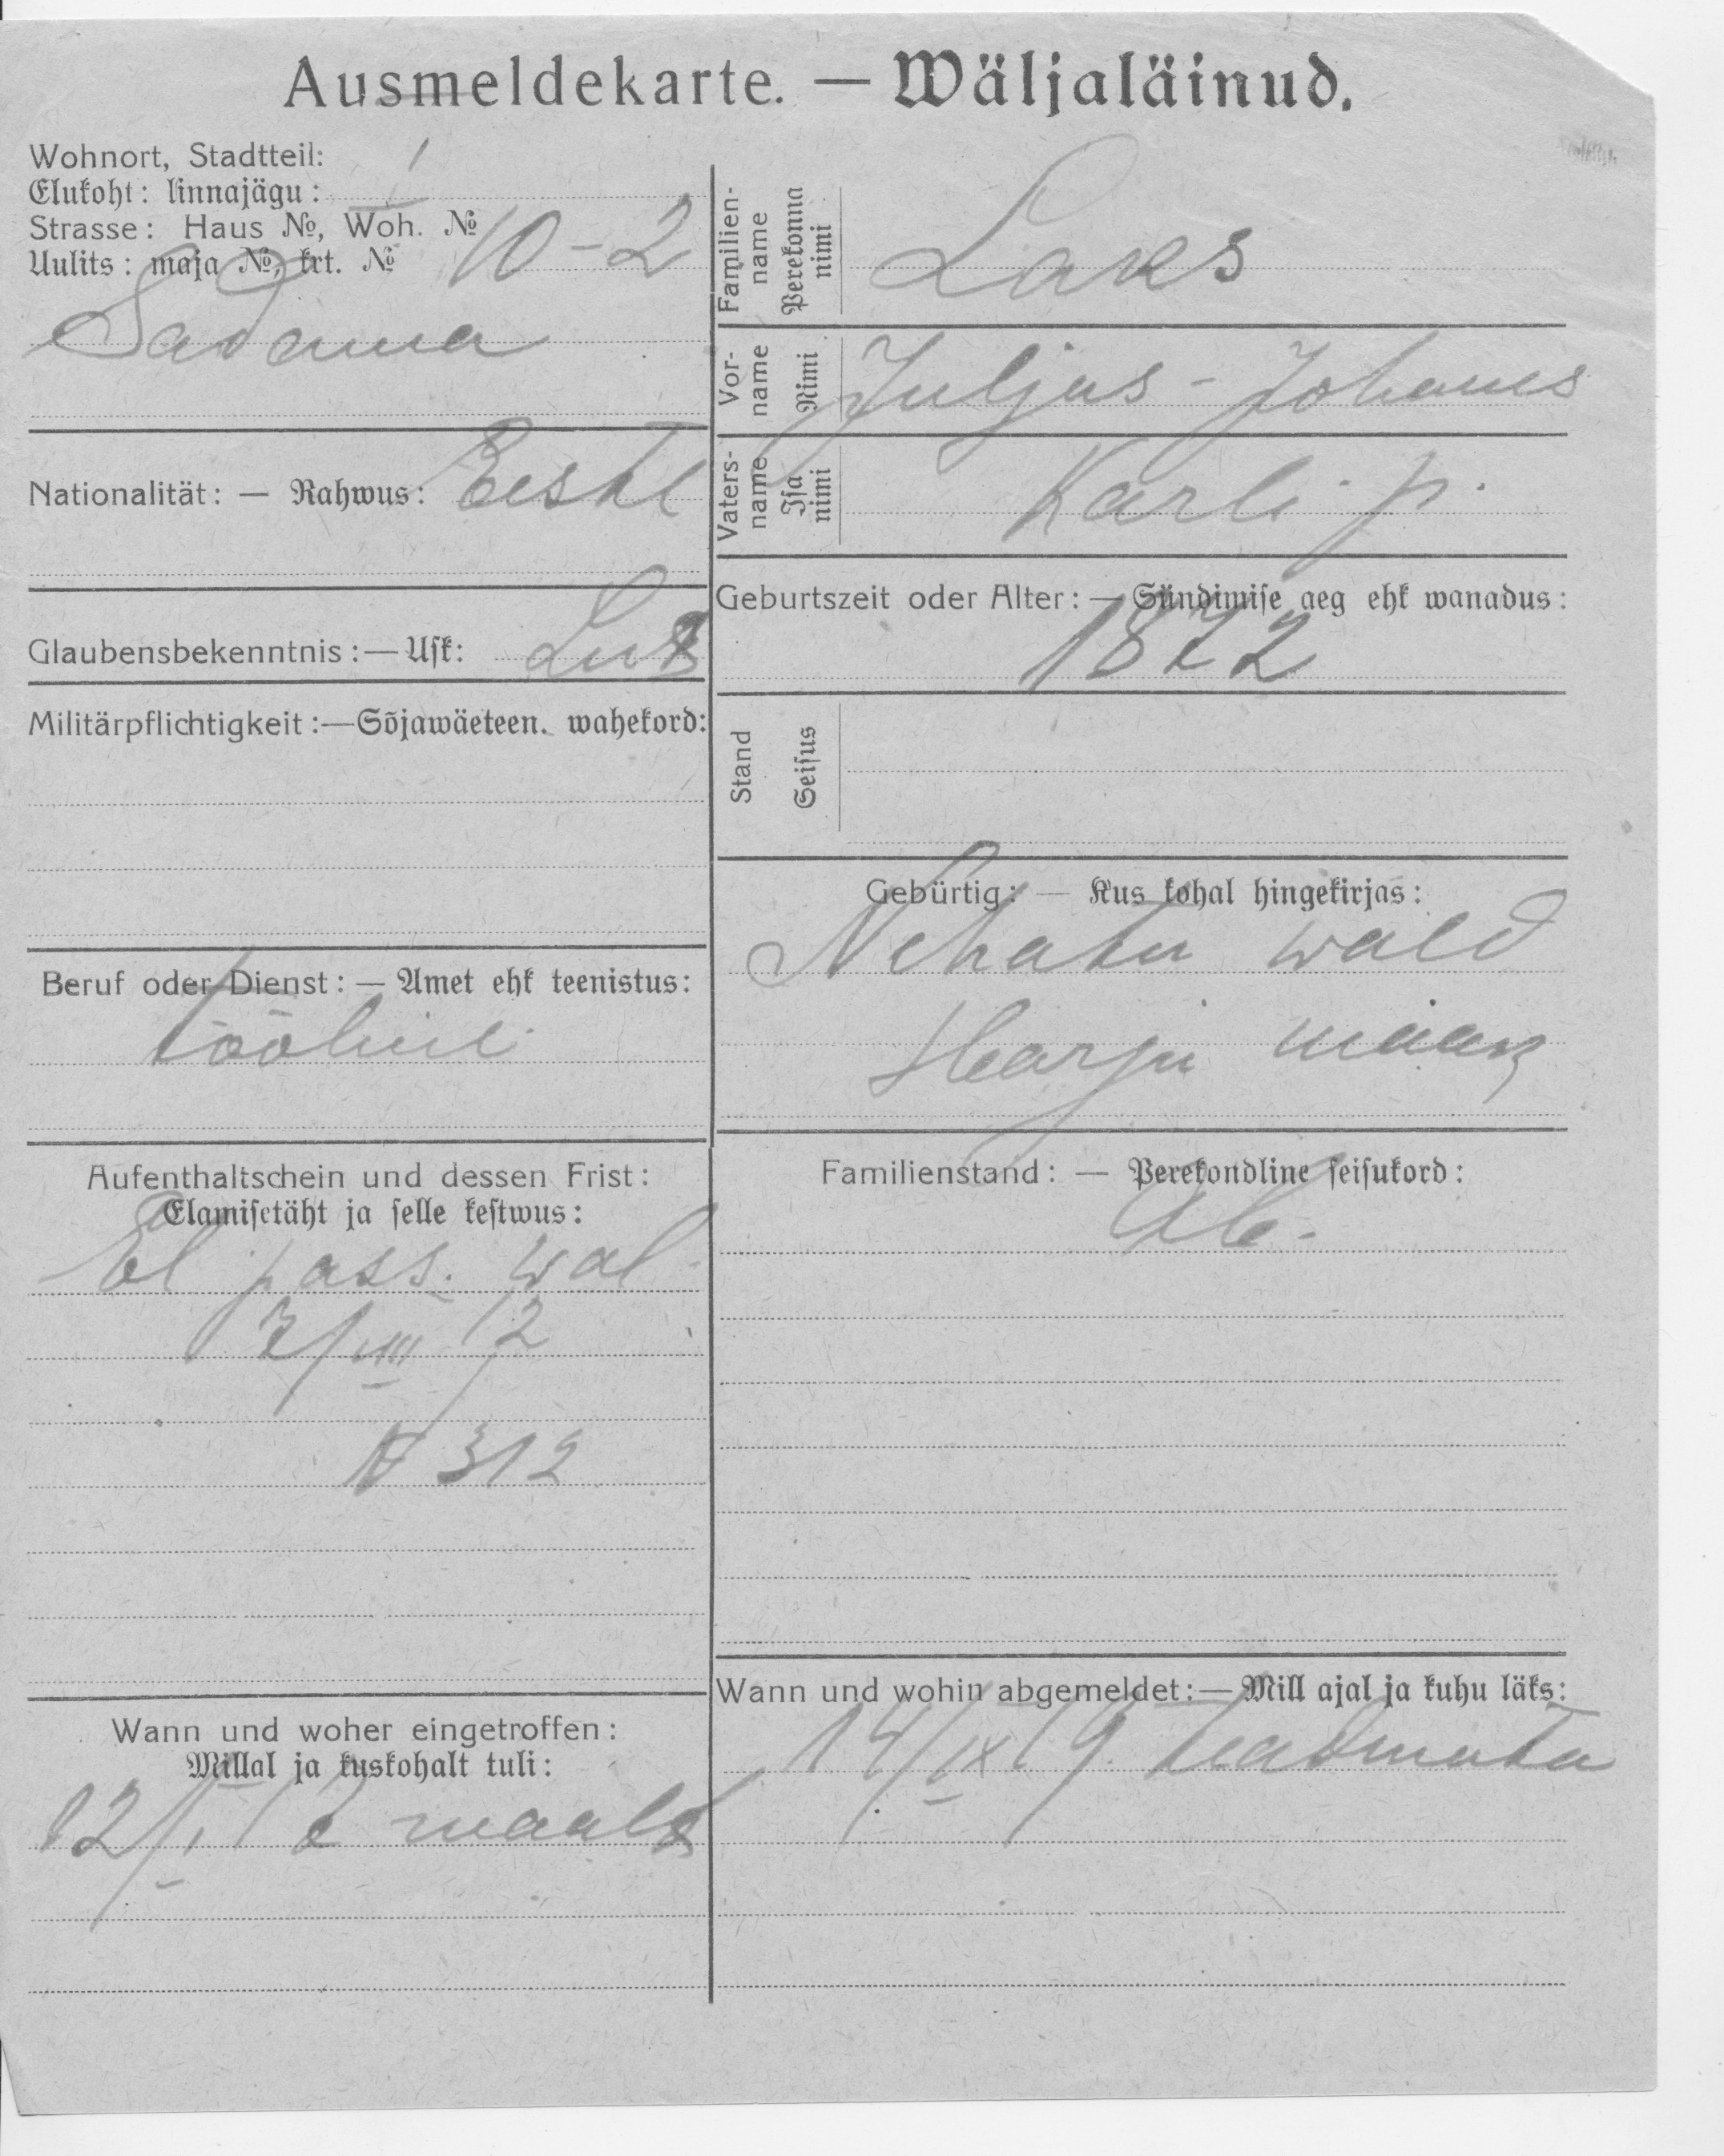 Ausmeldekarte. — Wäljaläinud.
Wohnort, Stadtteil:
Elukoht: linnajägu: I
Strasse: Haus №, Woh. №
Uulits: maja №, krt. № 10-2
Sadama
Nationalität: — Rahwus: Eestl
Glaubensbekenntnis: — Usk: Lut
Militärpflichtigkeit: — Sõjawäeteen. wahekord:
Beruf oder Dienst: — Amet ehk teenistus:
tööline
Aufenthaltschein und dessen Frist:
Elamisetäht ja selle kestwus:
El pass. wal
VIII 12
№ 312
Wann und woher eingetroffen:
Millal ja kuskohalt tuli:
12/I maalt
Familien-name Perekonna nimi Laks
Vor-name Nimi Juljus - Johanes
Vaters-name Isa nimi Karli p.
Geburtszeit oder Alter: — Sündimise aeg ehk wanadus:
1872
Stand Seisus
Gebürtig: — Kus kohal hingekirjas:
Nehatu wald
Harju maak
Familienstand: — Perekondline seisukord:
Ab.
Wann und wohin abgemeldet: — Mill ajal ja kuhu läks:
14/IX 19. teadmata